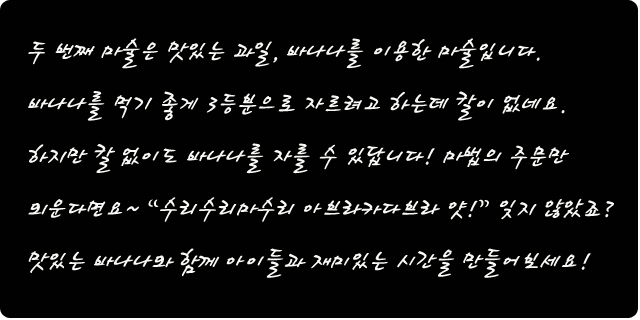 두 번째 마술은 맛있는 과일, 바나나를 이용한 마술입니다.
바나나를 먹기 좋게 3등분으로 자르려고 하는데 칼이 없네요.
하지만 칼 없이도 바나나를 자를 수 있답니다! 마법의 주문만
외운다면요~ “수리수리마수리 아브라카다브라 얏!” 잊지 않았죠?
맛있는 바나나와 함께 아이들과 재미있는 시간을 만들어보세요!